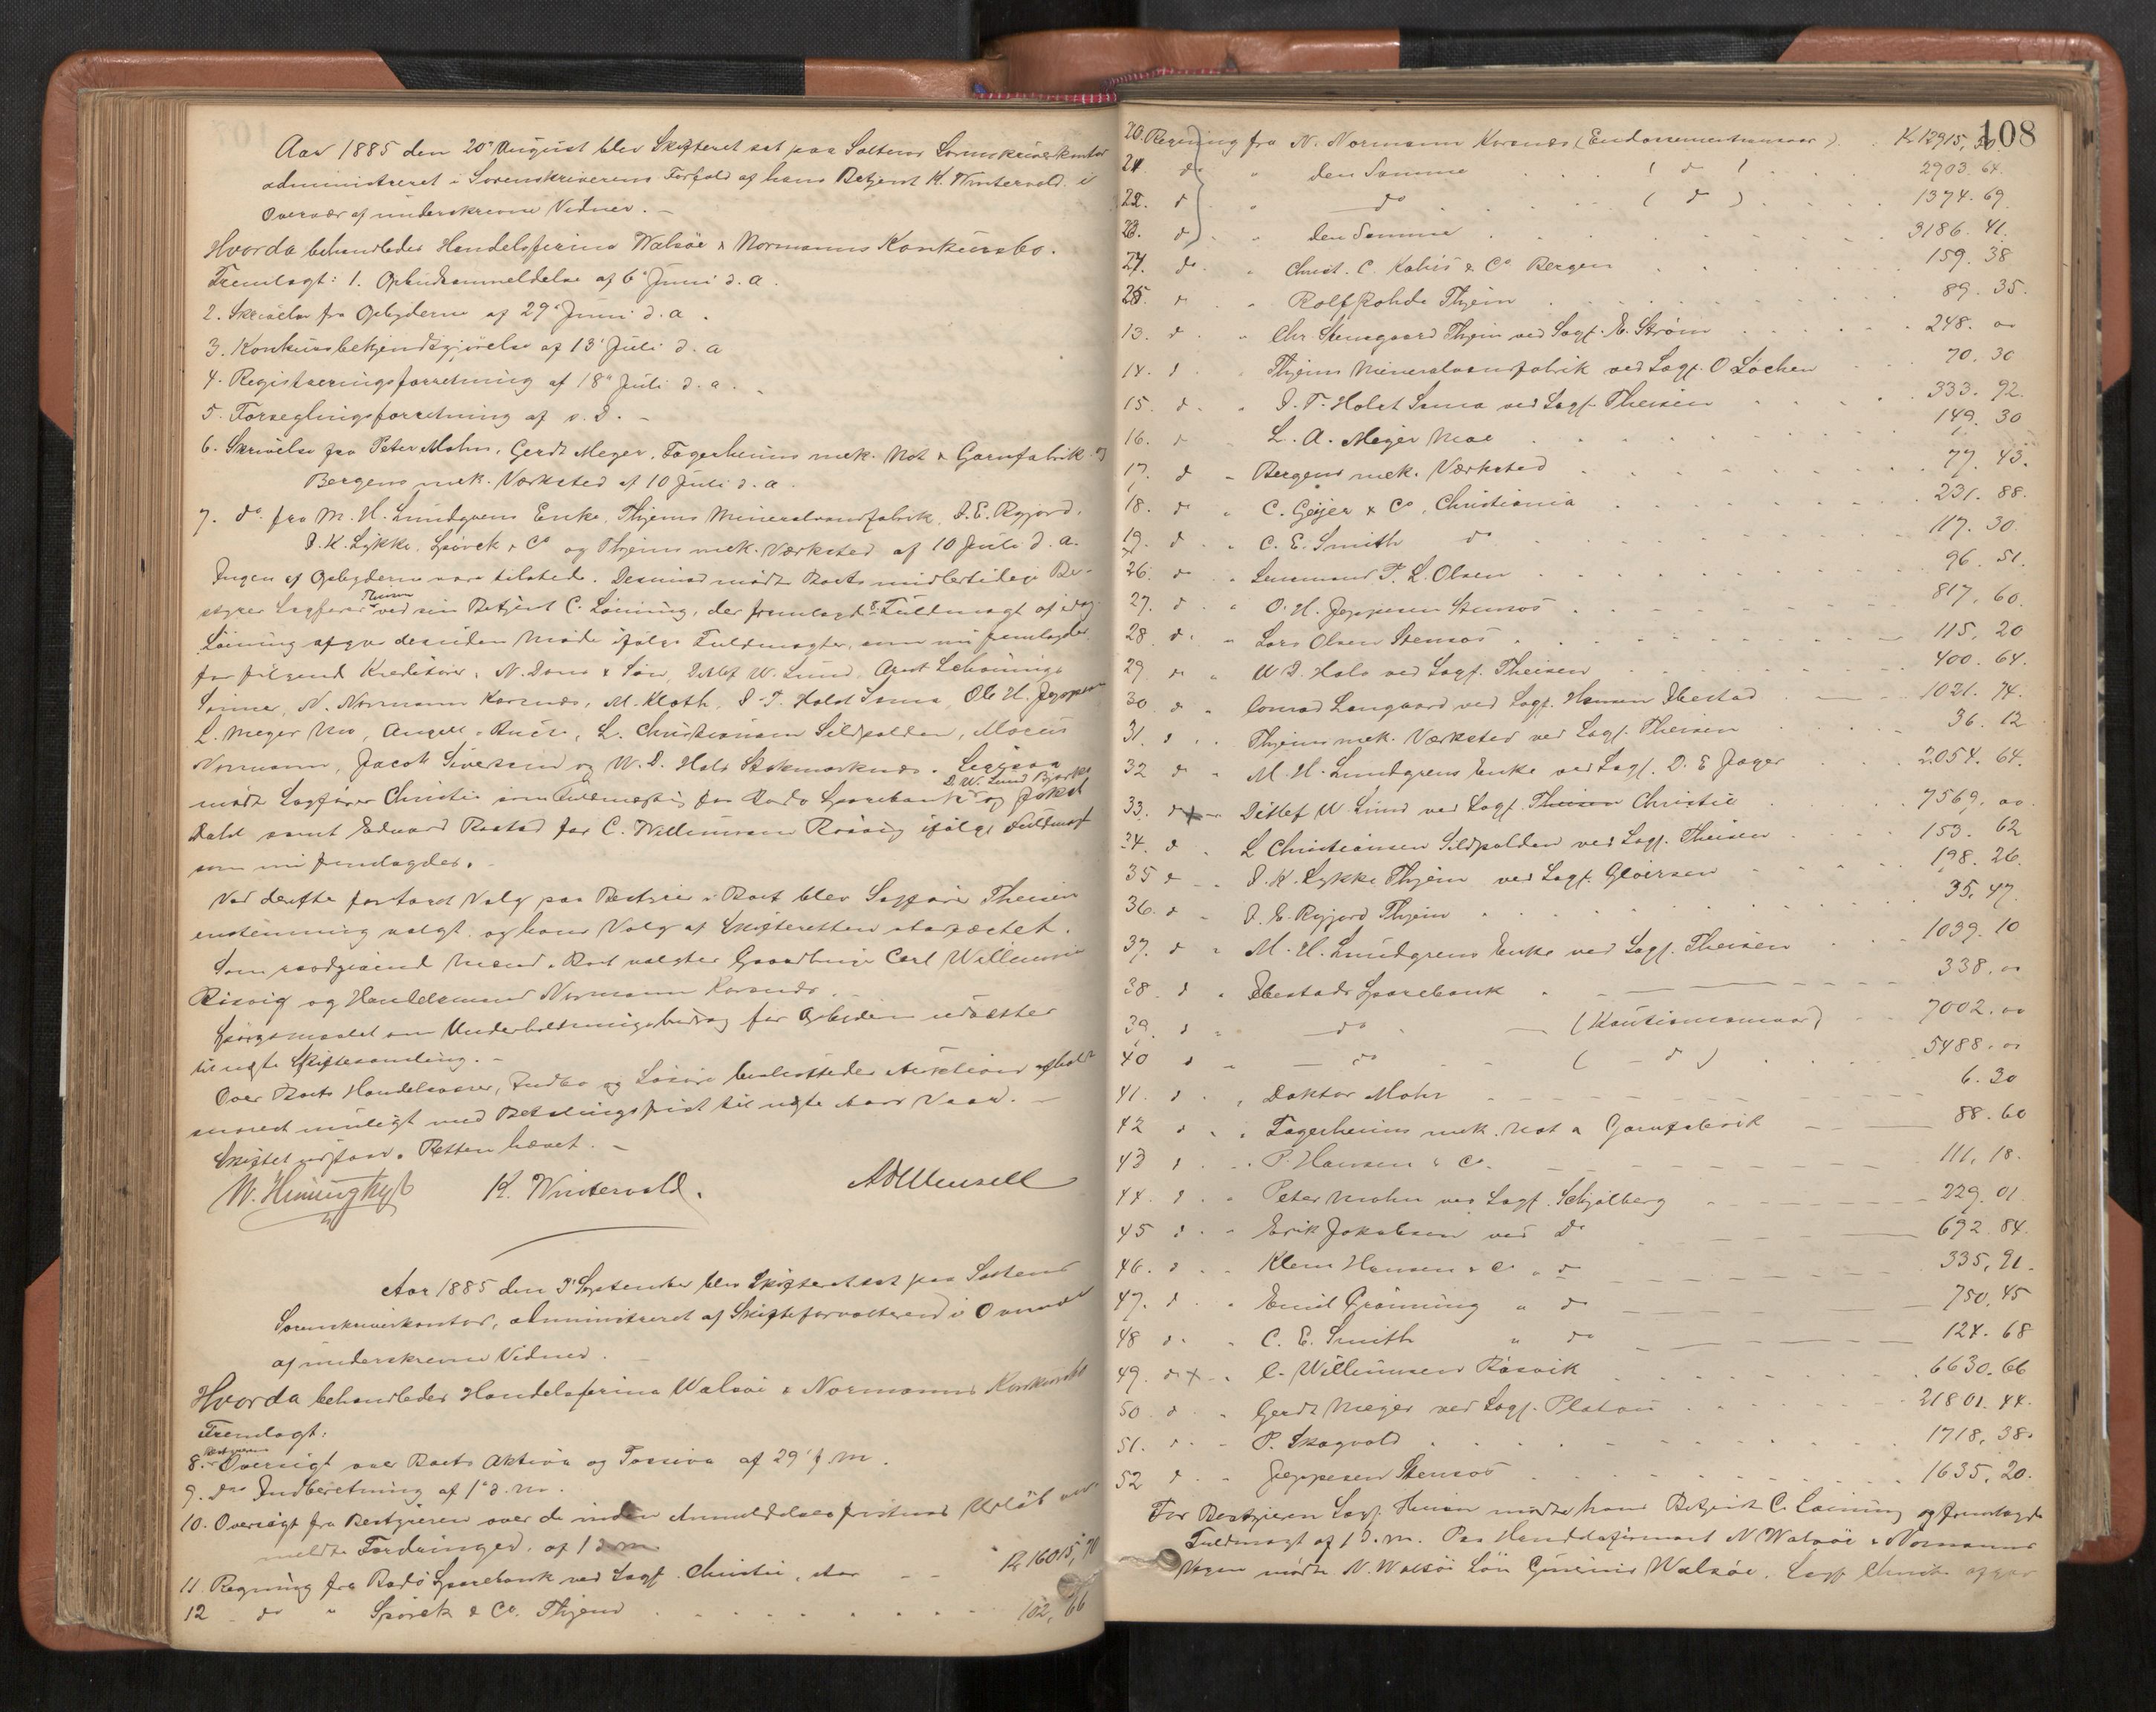 Aar 1885 den 20de August blev Skifteret sat paa Saltens Sorenskriverkontor
administreret i Sorenskriverens Forfald af hans Betjent K. Wintervold i
Overvær af underskrevne Vidner. –
Hvorda behandledes Handelsfirma Walsøe & Normanns Konkursbo.
Fremlagt: 1. Opbudsanmeldelse af 6 Juni d. a.
2. Skrivelse fra Opbyderne af 29 Juni d. a.
3. Konkursbekjendtgjørelse af 13 Juli d. a
4. Registreringsforretning af 18 Juli d. a.
5. Forseglingsforretning af s. D. –
6. Skrivelse fra Peter Mohn, Gerdt Meyer, Fagerheims mek. Not & Garnfabrik og
Bergens mek. Værksted af 10 Juli d. a.
7. do fra M. H. Lundgrens Enke, Thjems Mineralvandfabrik, J. E. Rygjord,
J. K. Lykke, Spørck & Co og Thjems mek. Værksted af 10 Juli d. a.
Ingen af Opbyderne var tilstede. Desuden mødte Boets midlertidige Be-
styrer Sagfører Theisen ved sin Betjent C. Løining, der fremlagde Fuldmagt af idag
Løining afgav desuden Møde ifølge Fuldmagter, som nu fremlagdes
for følgende Kreditorer, N. Dons & Søn, Ditlef W. Lund, Arnt Schønings
Sønner, N. Normann Korsnæs, M. Kloth, J. T. Holst Sønner, Ole H. Jeppesen
L. Meyer Mo, Angell, L. Christiansen Sildpolden,
Normann, Jacob Sivertsen og W. D. Hals Stokmarknæs. Ligesaa
mødte Sagfører Christie som Fuldmægtig for Bodø Sparebank, D. W. Lund og
Dahl samt Edvard Rostad for C. Willumsen Røsvig ifølge Fuldmagt
som nu fremlagdes.
Ved derefter foretaget Valg paa Bestyrer i Boet blev Sagfører Theisen
enstemmig valgt og hans Valg af Skifteretten stadfæstet.
Som raadgivende Mænd i Boet valgtes Gaardbruger Carl Willumsen
Røsvig og Handelsmand Normann Korsnæs.
Spørgsmaalet om Underholdningsbidrag for Opbyderne udsættes
til næste Skiftesamling. –
Over Boets Handelsvarer, Indbo og Løsøre besluttedes Auktion afholdt
snarest muligt med Betalingsfrist til næste Aars Vaar. –
Skiftet udsat. Retten hævet. –
K. Wintervold.
Aar 1885 den 3 September blev Skifteret sat paa Saltens
Sorenskriverkontor, administreret af Skifteforvalteren i Overvær
af underskrevne Vidner.
Hvorda behandledes Handelsfirma Walsøe & Normanns Konkursbo
Fremlagt:
8. Bestyrerens Oversigt over Boets Aktiva og Passiva af 29 f. M.
9. Do Indberetning af 1 d. M.
10. Oversigt fra Bestyreren over de inden Anmeldelsesfristens Udløb an-
meldte Fordringer, af 1 d. M.
11. Regning fra Bodø Sparebank ved Sagf. Christie, stor – – Kr 16015, 70
12 – do " Spørck & Co. Thjem . . . . 102, 66
108
20. Regning fra N. Normann Korsnæs (Endossementansvar) . Kr 12915, 50
21. do " den Samme . . . ( d ) 2903. 64.
22. d " do . . . ( d ) . . . 1374. 69.
23. d . " den Samme . . . 3186. 41.
24. do . " Christ. C. Kahrs & Co Bergen . . . 159. 38
25. d . " Rolf Rohde Thjem . . . 89. 35.
13. d . " Chr. Stensgaard Thjem ved Sagf. E. Strøm . . . 248. 00
14. d " Thjems Mineralvandfabrik ved Sagf. O Løchen . . . 70. 30
15. d . " J. T. Holst Sønner ved Sagf. Theisen . . . 333. 92.
16. d " L. A. Meyer Moe . . . 149. 30
17. d " Bergens mek. Værksted . . . 77. 43.
18. d " C. Geijer & Co, Christiania . . . 231. 88.
19. d . " C. E. Smith do . . . 117. 30.
26. d . " Lensmand P. L. Olsen . . . 96. 51.
27. d . " O. H. Jeppesen Stensøs . . . 817. 60.
28. d . " Lars Olsen Stensøs . . . 115, 20
29. d " W D. Hals ved Sagf. Theisen . . . 400. 64.
30. d " Conrad Langaard ved Sagf. Hansen Ibestad . . . 1021. 74.
31. d . " Thjems mek. Værksted ved Sagf. Theisen . . . 36. 12
32 d " M. H. Lundgrens Enke ved Sagf. D. E Jager . . . 2054. 64.
33. d x " Ditlef W Lund ved Sagf. Theisen Christie . . . 7569, 00.
34. d " L Christiansen Sildpolden ved Sagf. Theisen . . . 153. 62
35 d " J. K. Lykke Thjem ved Sagf. Gløersen . . . 198. 26.
36. d " J. E. Rygjord Thjem . . . 35. 47.
37. d " M. H. Lundgrens Enke ved Sagf. Theisen . . . 1039. 10
38. d " Ibestads Sparebank . . . 338. 00
39. d " do (Kautionsansvar) . . . 7002. 00
40 d " do ( – d ) . . . 5488. 00
41. d . " Doktor Mohr . . . 6. 30
42 d . " Fagerheims mek. Not & Garnfabrik . . . 88. 60
43 d . " P. Hansen & Co. . . . 111, 18.
44. d . " Peter Mohn ved Sagf. Schjølberg . . . 229. 01.
45 d . " Erik Jakobsen ved Do . . . 692. 84.
46. d . " Klem Hansen & Co " d . . . 335, 91.
47. d . " Emil Grønning " d . . . 750. 45
48 d . " C. E. Smith " do . . . 124. 68
49. d x " C. Willumsen Røsvik . . . 6630. 66
50. d " Gerdt Meyer ved Sagf. Platou . . . 21801. 44.
51. d . " P. Skagvold . . . 1718, 38.
52 d . " Jeppesen Stensøs . . . 1635, 20.
For Bestyreren Sagf. Theisen mødte hans Betjent C. Løining og fremlagde
Fuldmagt af 1 d. M. For Handelsfirmaet N Walsøe & Normanns
Vegne mødte N. Walsøes Søn Walsøe. Sagf Christie afgav